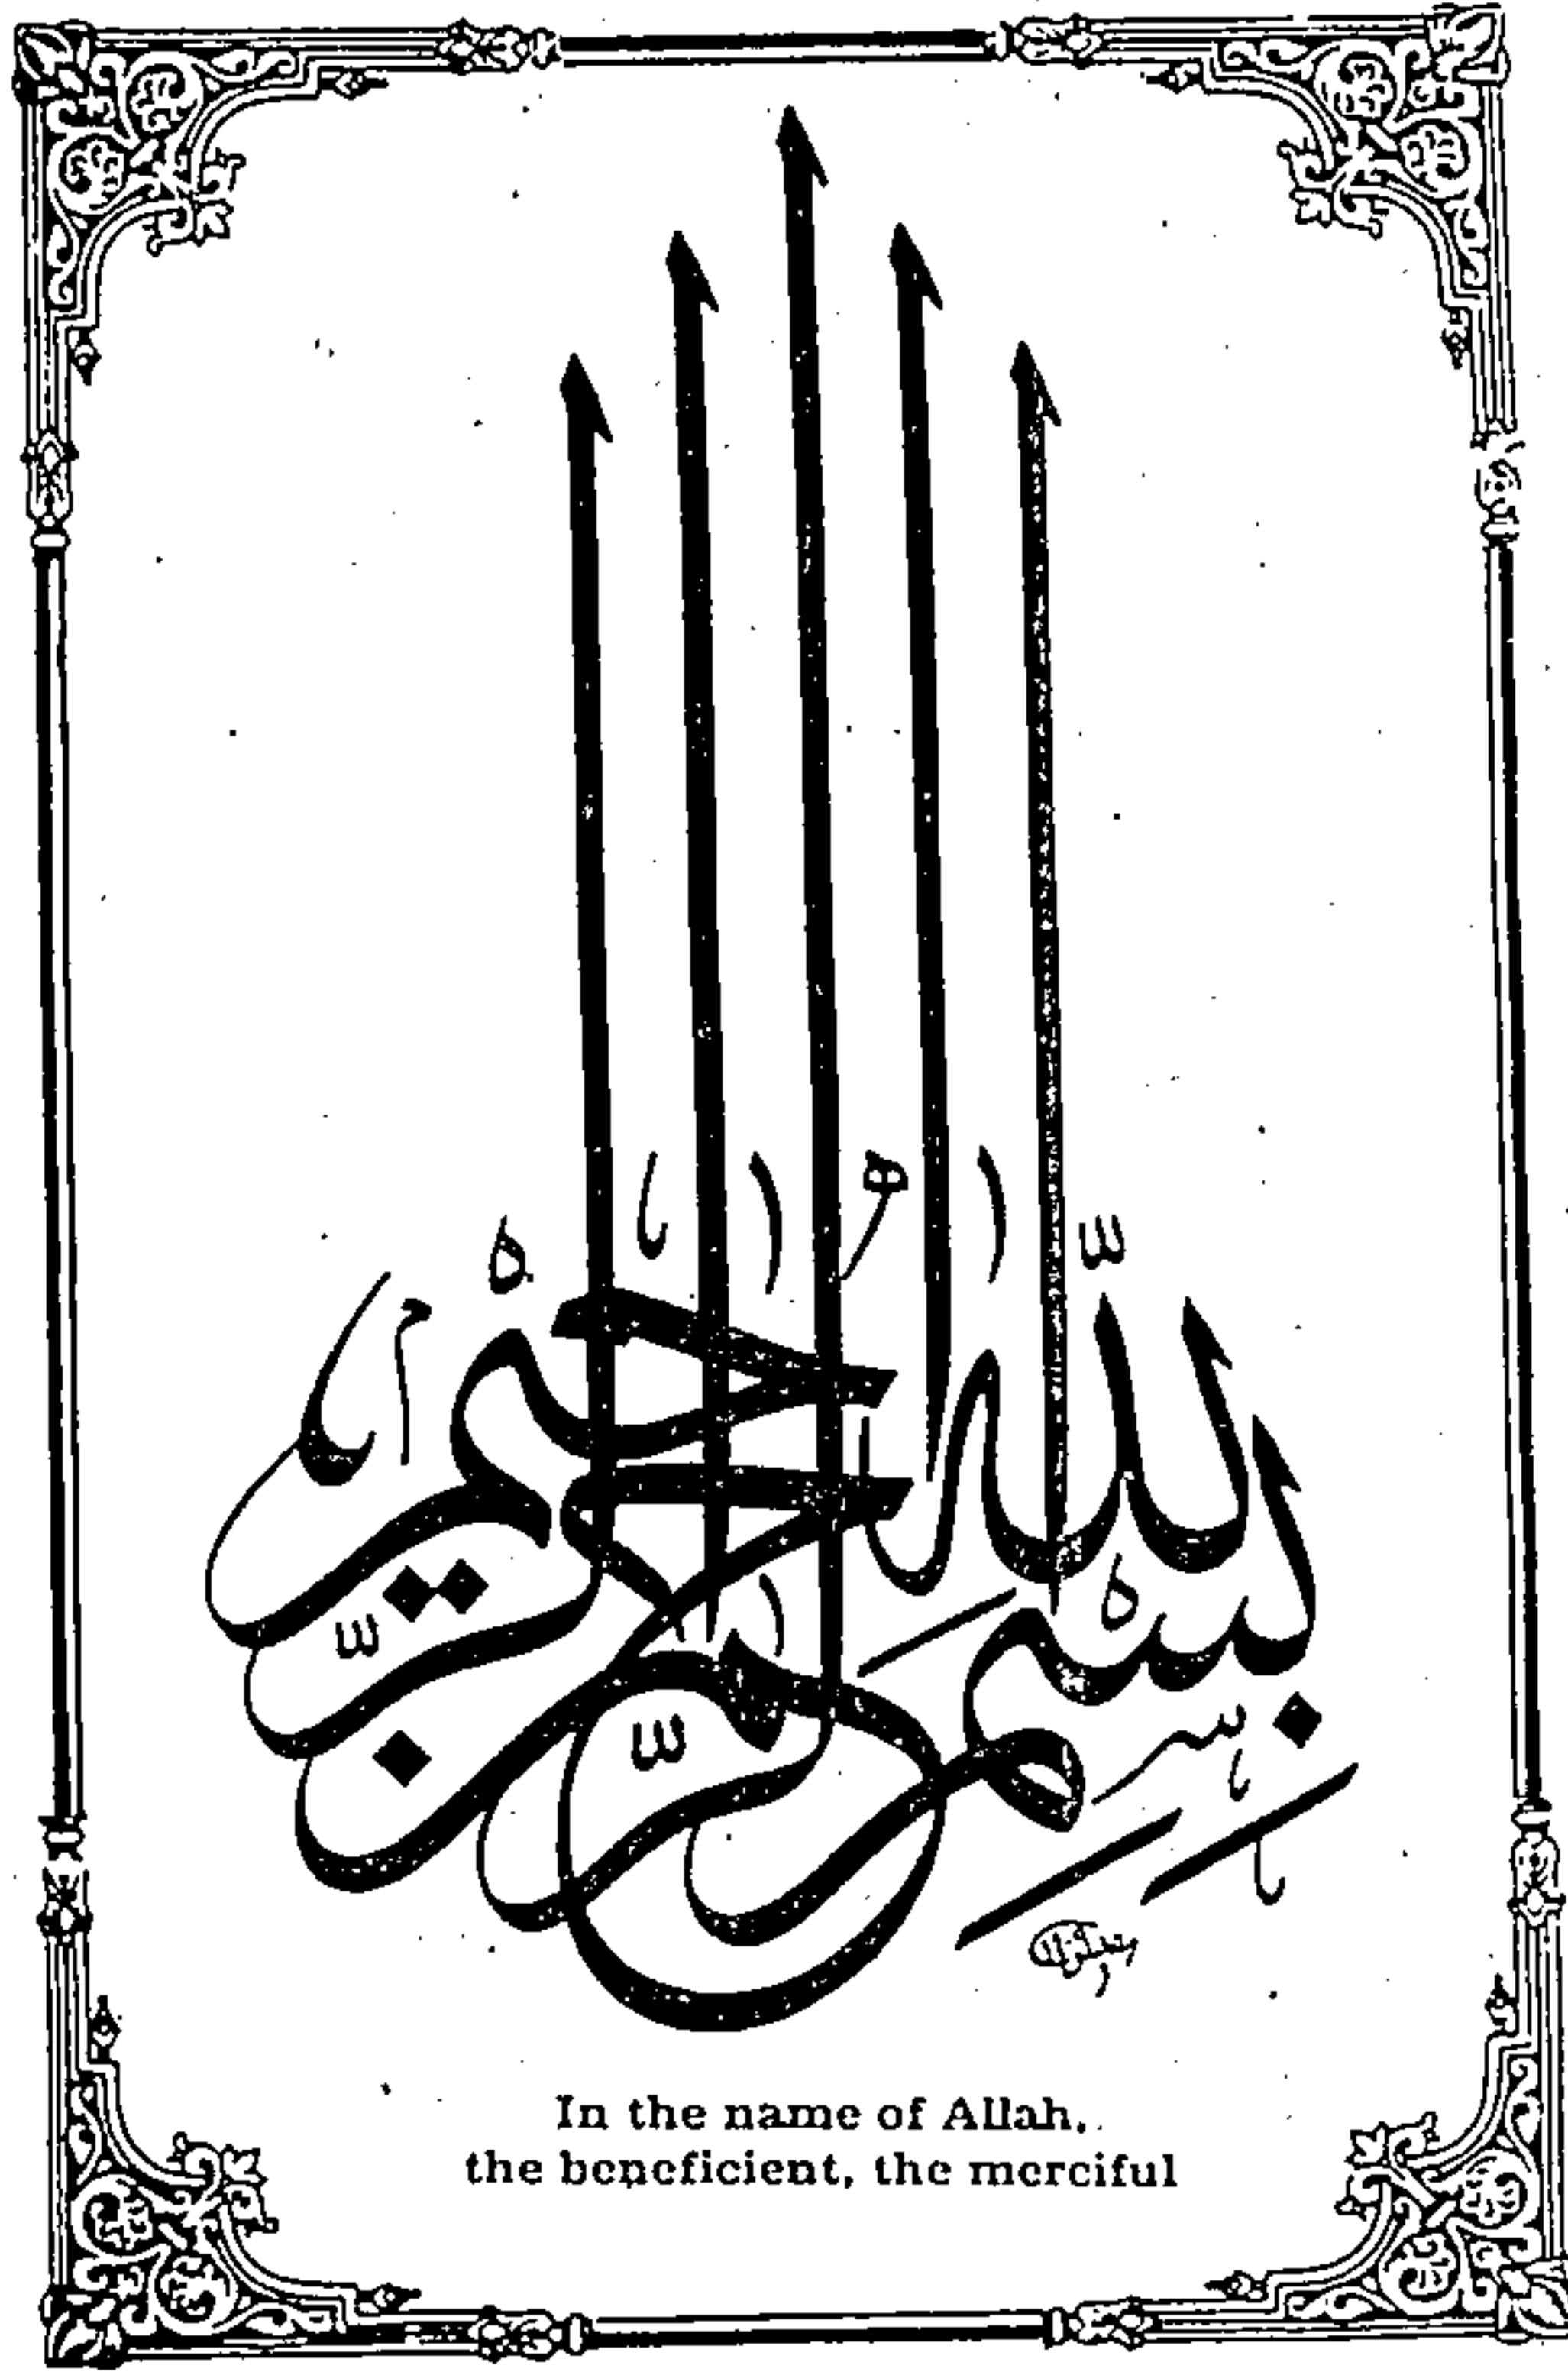 بسم الله الرحمن الرحيم
In the name of Allah,
the beneficient, the merciful